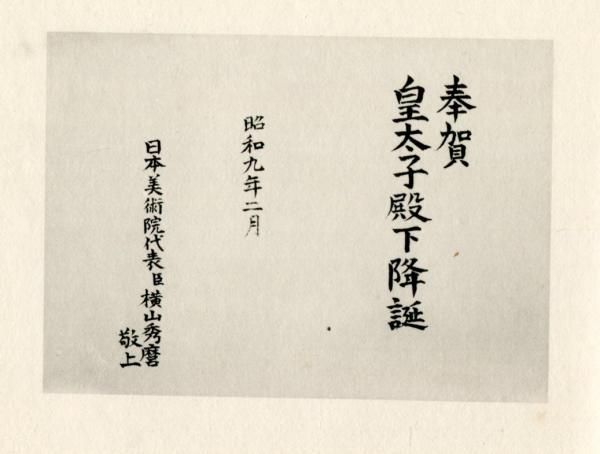 奉賀
皇太子殿下降誕
昭和九年二月
日本美術院代表臣横山秀麿
敬上